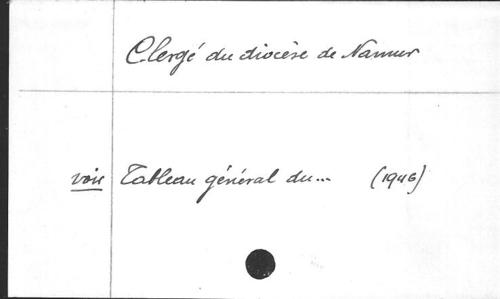 Clergé du diocèse de Namur
voir Tableau général du... (1946)